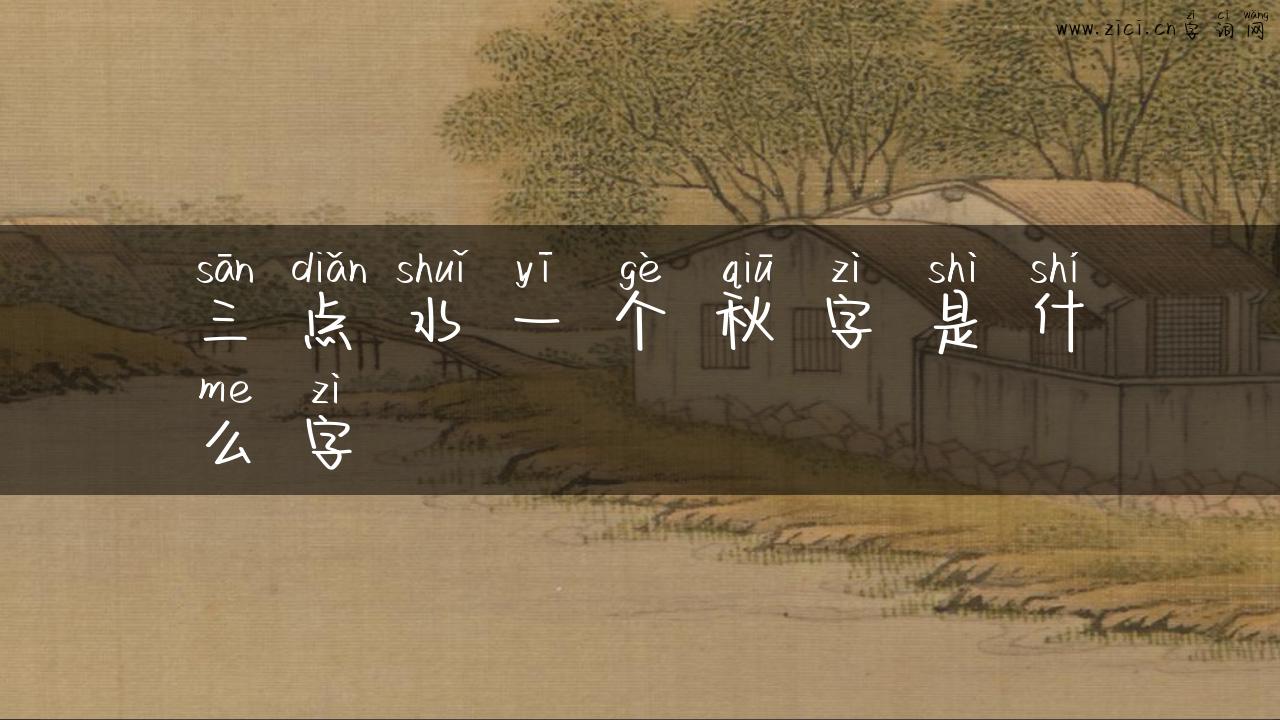 zì cí wǎng
www.zici.cn字词网
sān diǎn shuǐ yī gè qiū zì shì shí
三点水一个秋字是什
me zì
么字